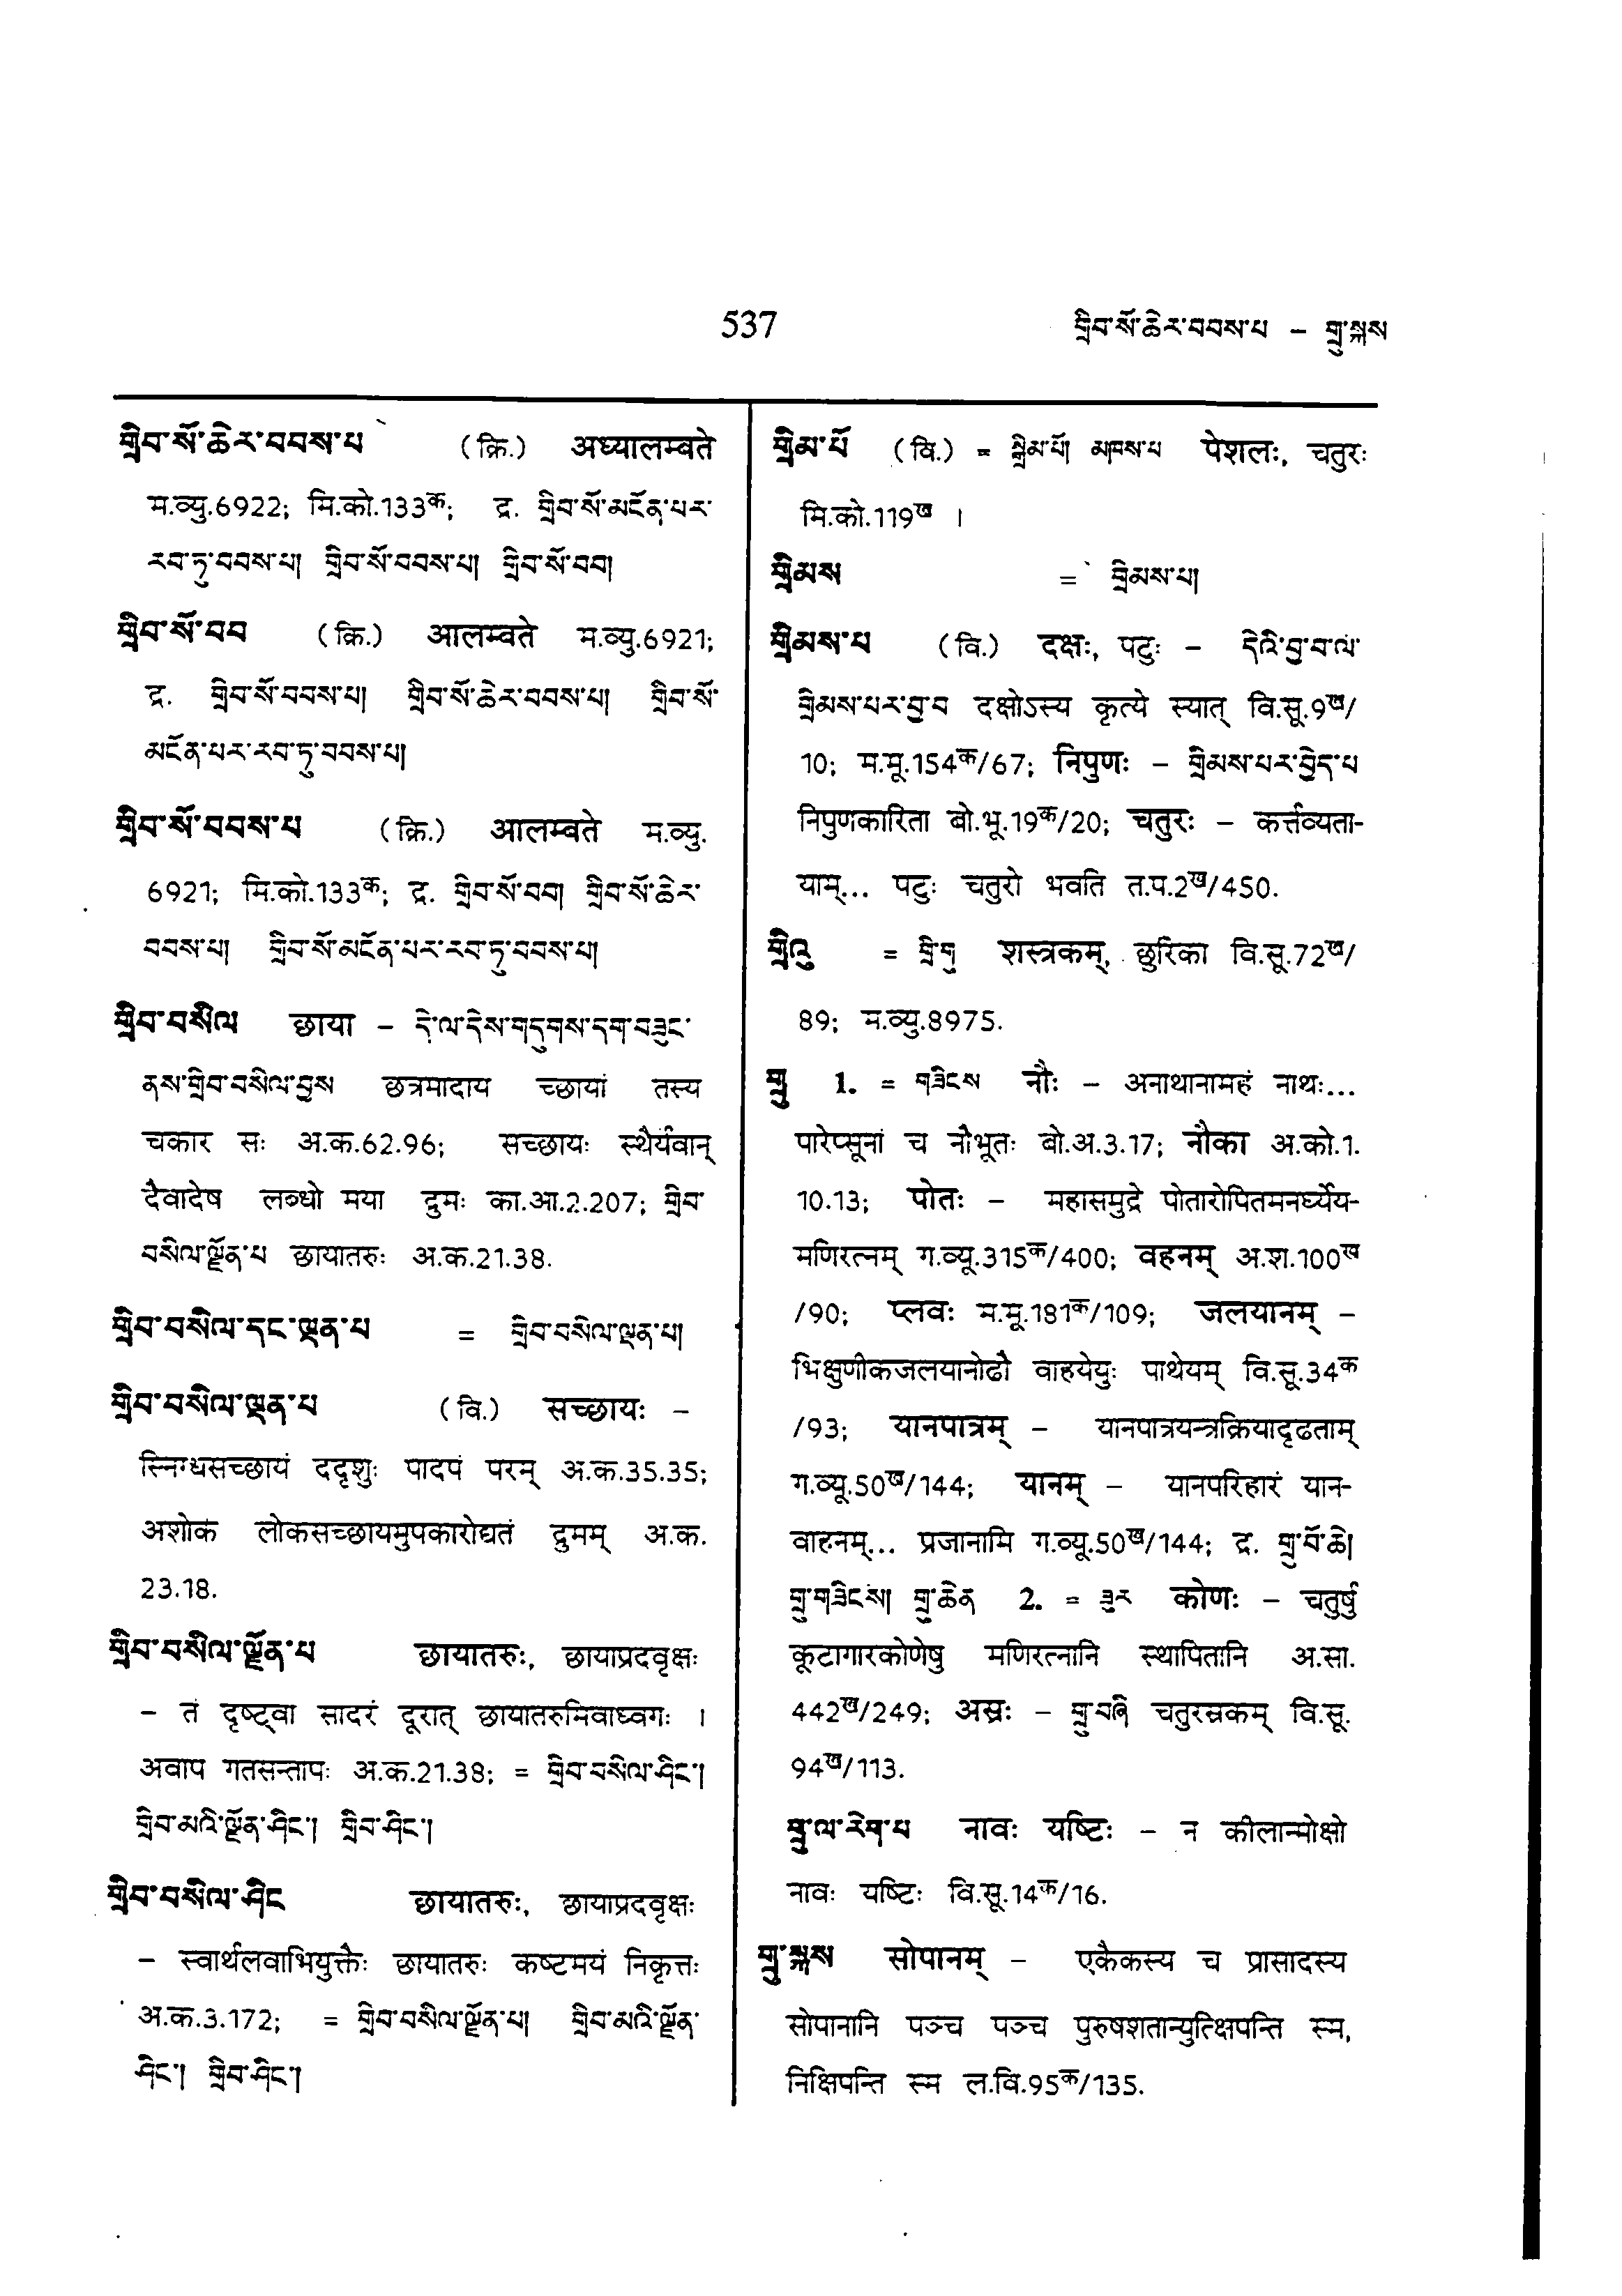 537
གྲིབ་སོ་ཆེར་བབས་པ – གྲུ་སྐས
གྲིབ་སོ་ཆེར་བབས་པ (क्रि.) अध्यालम्बते
म.व्यु.6922; मि.को.133क; द्र. གྲིབ་སོ་མངོན་པར་
རབ་ཏུ་བབས་པ། གྲིབ་སོ་བབས་པ། གྲིབ་སོ་བབ།
གྲིབ་སོ་བབ (क्रि.) आलम्बते म.व्यु.6921;
द्र. གྲིབ་སོ་བབས་པ། གྲིབ་སོ་ཆེར་བབས་པ། གྲིབ་སོ་
མངོན་པར་རབ་ཏུ་བབས་པ།
གྲིབ་སོ་བབས་པ (क्रि.) आलम्बते म.व्यु.
6921; मि.को.133क; द्र. གྲིབ་སོ་བབ། གྲིབ་སོ་ཆེར་
བབས་པ། གྲིབ་སོ་མངོན་པར་རབ་ཏུ་བབས་པ།
གྲིབ་བསིལ छाया – དེ་ལ་དེས་གདུགས་དག་བཟུང་
ནས་གྲིབ་བསིལ་བྱས छत्रमादाय च्छायां तस्य
चकार सः अ.क.62.96; सच्छायः स्थैर्यवान्
दैवादेष लब्धो मया द्रुमः का.आ.2.207; གྲིབ་
བསིལ་ལྗོན་པ छायातरुः अ.क.21.38.
གྲིབ་བསིལ་དང་ལྡན་པ = གྲིབ་བསིལ་ལྡན་པ།
གྲིབ་བསིལ་ལྡན་པ (वि.) सच्छायः –
स्निग्धसच्छायं ददृशुः पादपं परम् अ.क.35.35;
अशोकं लोकसच्छायमुपकारोद्यतं द्रुमम् अ.क.
23.18.
གྲིབ་བསིལ་ལྗོན་པ छायातरुः, छायाप्रदवृक्षः
– तं दृष्ट्वा सादरं दूरात् छायातरुमिवाध्वगः ।
अवाप गतसन्तापः अ.क.21.38; = གྲིབ་བསིལ་ཤིང་།
གྲིབ་མའི་ལྗོན་ཤིང་། གྲིབ་ཤིང་།
གྲིབ་བསིལ་ཤིང छायातरुः, छायाप्रदवृक्षः
– स्वार्थलवाभियुक्तैः छायातरुः कष्टमयं निकृत्तः
अ.क.3.172; = གྲིབ་བསིལ་ལྗོན་པ། གྲིབ་མའི་ལྗོན་
ཤིང་། གྲིབ་ཤིང་།
གྲིམ་པོ (वि.) = སྒྲིམ་པོ། མཁས་པ पेशलः, चतुरः
मि.को.119ख ।
གྲིམས = གྲིམས་པ།
གྲིམས་པ (वि.) दक्षः, पटुः – དེའི་བྱ་བ་ལ་
གྲིམས་པར་བྱ་བ दक्षोऽस्य कृत्ये स्यात् वि.सू.9ख/
10; म.मू.154क/67; निपुणः – གྲིམས་པར་བྱེད་པ
निपुणकारिता बो.भू.19क/20; चतुरः – कर्त्तव्यता-
याम्... पटुः चतुरो भवति त.प.2ख/450.
གྲིའུ = གྲི་གུ शस्त्रकम्, छुरिका वि.सू.72ख/
89; म.व्यु.8975.
གྲུ 1. = གཟིངས नौः – अनाथानामहं नाथः...
पारेप्सूनां च नौभूतः बो.अ.3.17; नौका अ.को.1.
10.13; पोतः – महासमुद्रे पोतारोपितमनर्घ्येय-
मणिरत्नम् ग.व्यू.315क/400; वहनम् अ.श.100ख
/90; प्लवः म.मू.181क/109; जलयानम् –
भिक्षुणीकजलयानोढौ वाहयेयुः पाथेयम् वि.सू.34क
/93; यानपात्रम् – यानपात्रयन्त्रक्रियादृढताम्
ग.व्यू.50ख/144; यानम् – यानपरिहारं यान-
वाहनम्... प्रजानामि ग.व्यू.50ख/144; द्र. གྲུ་བོ་ཆེ།
གྲུ་གཟིངས། གྲུ་ཆེན 2. = ཟུར कोणः – चतुर्षु
कूटागारकोणेषु मणिरत्नानि स्थापितानि अ.सा.
442ख/249; अस्रः – གྲུ་བཞི चतुरस्रकम् वि.सू.
94ख/113.
གྲུ་ལ་རེག་པ नावः यष्टिः – न कीलान्मोक्षो
नावः यष्टिः वि.सू.14क/16.
གྲུ་སྐས सोपानम् – एकैकस्य च प्रासादस्य
सोपानानि पञ्च पञ्च पुरुषशतान्युत्क्षिपन्ति स्म,
निक्षिपन्ति स्म ल.वि.95क/135.